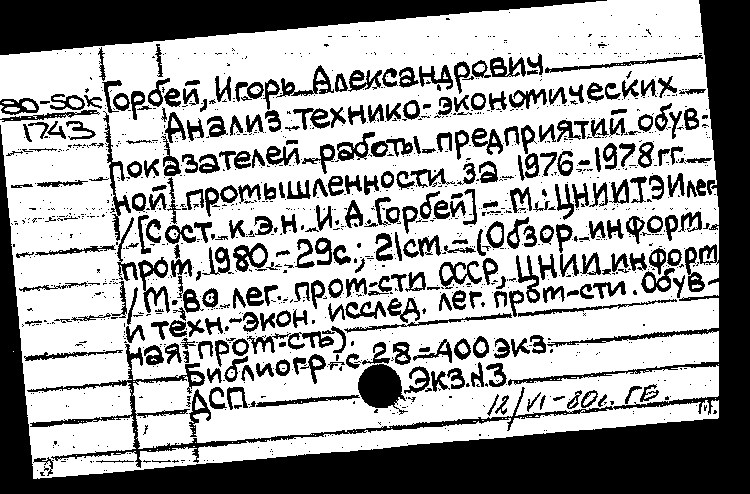 80-50к Горбей, Игорь Александрович
1743 Анализ технико-экономических
показателей работы предприятий обув-
ной промышленности за 1976-1978гг.
/[Сост. к.э.н. И.А.Горбей]-М.: ЦНИИТЭИлег-
пром, 1980.-29с.; 21см.-(Обзор. информ.
/М-во лег. пром-сти СССР, ЦНИИ информ
и техн.-экон. исслед. лег. пром-сти. Обув-
ная пром-сть).
Библиогр.: с. 28.-400экз.
ДСП. Экз.N3.
12/VI-80г. ГБ.